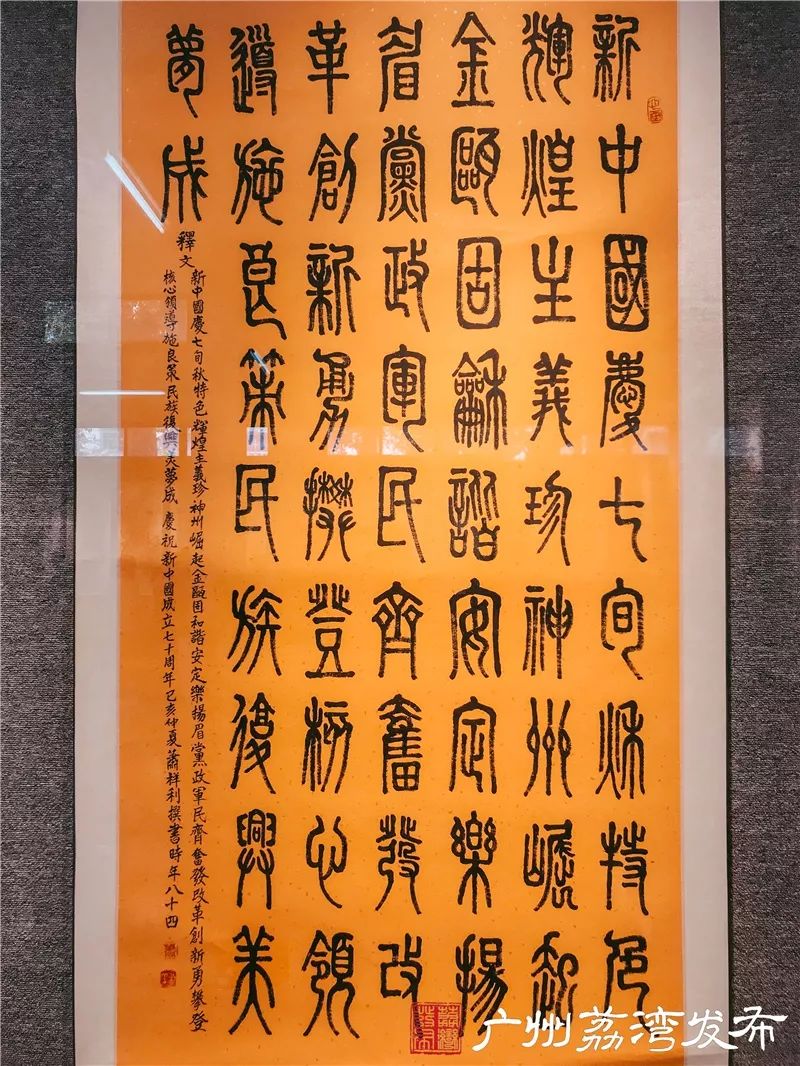 新中國慶七旬秋特色
輝煌主義珍神州崛起
金甌固龢諧安定樂揚
眉黨政軍民齊奮發改
革創新勇攀登核心領
導施良策民族復興美
夢成
釋文
新中國慶七旬秋特色輝煌主義珍神州崛起金甌固和諧安定樂揚眉黨政軍民齊奮發改革創新勇攀登
核心領導施良策民族復興美夢成 慶祝新中國成立七十周年己亥仲夏蕭祥利撰書時年八十四
广州荔湾发布